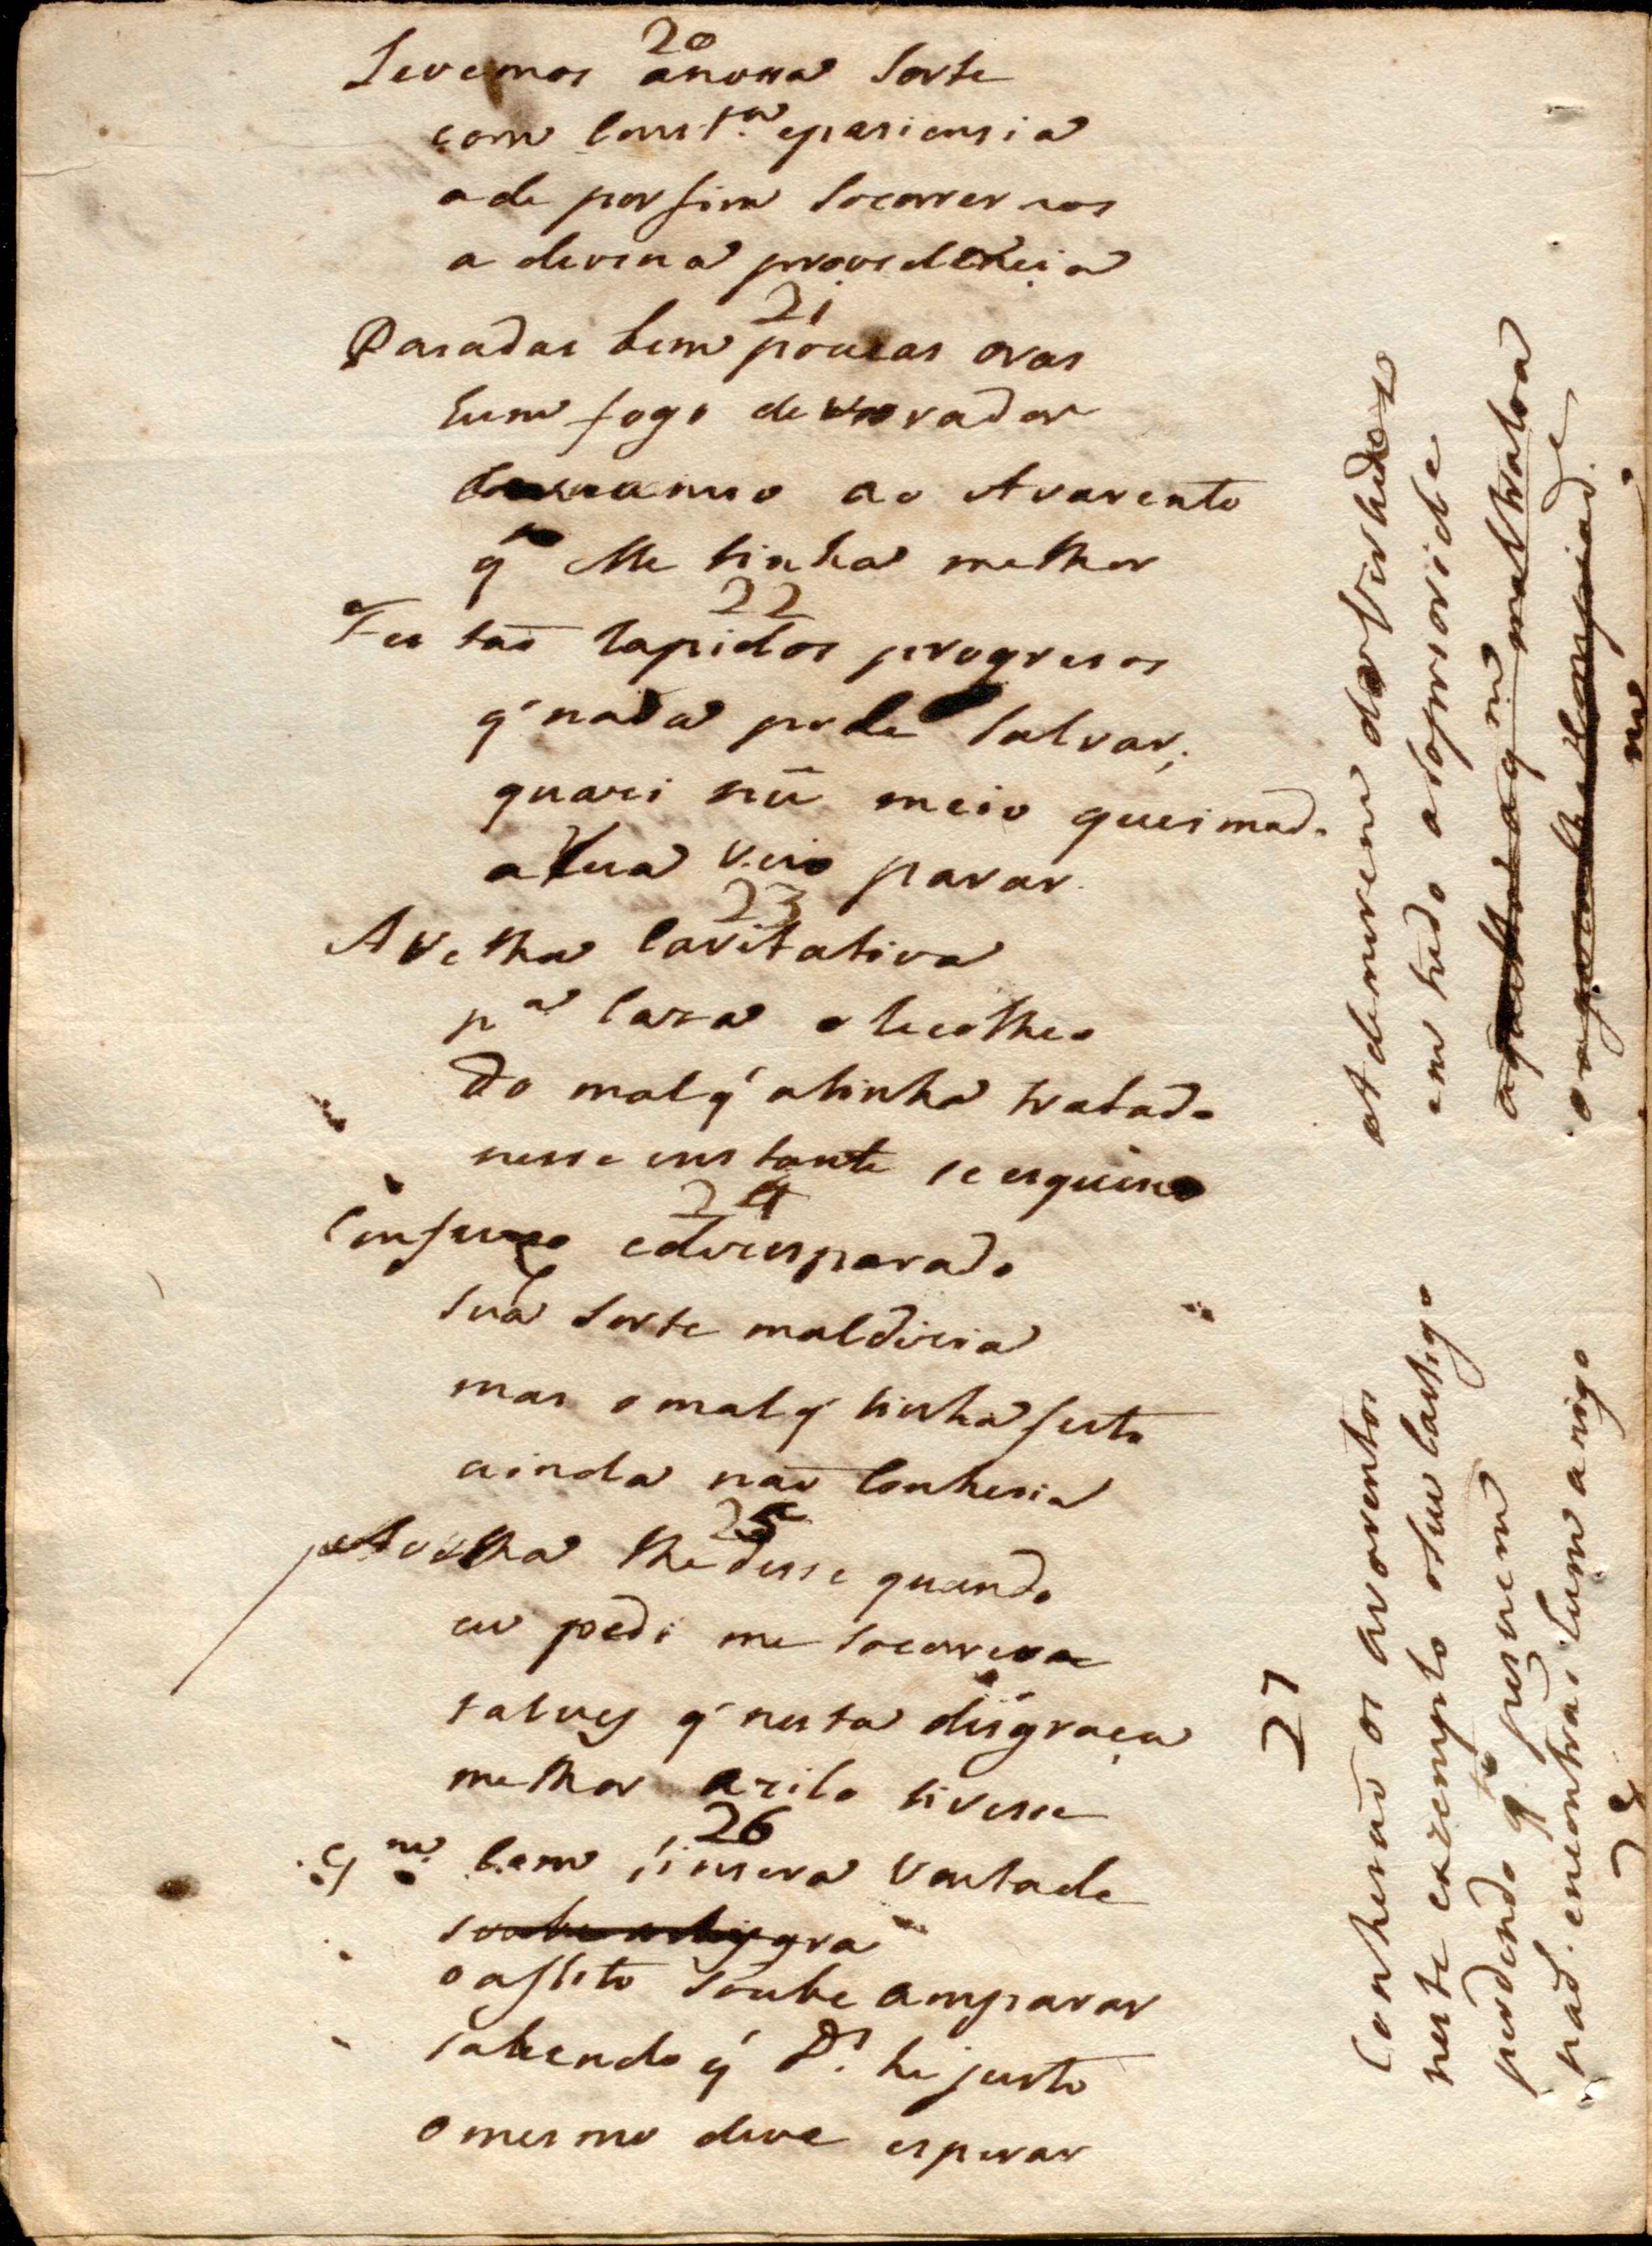 20
Levemos anossa sorte
com Const.a epasiensia
ade porfim socorrer nos
a devina providencia
21
Pasadas bem poucas oras
hum fogo devorador
ao Avarento
q lhe tinha melhor
22
Fes taõ rapidos progresos
q' nada pode salvar,
quasi nũ meio queimado
a rua veio parar.
23
A velha Caritativa
p.a Caza o lecolheo
do mal q' atinha tratado
nesse enstante se esqueceo
24
Confuzo edeiesparado
sua sorte maldisia
mas o mal q' tinha feito
ainda naõ Conhesia
25
A velha lhe disse quando
eu pedi me socorrese
talves q' nesta disgraça
melhor azilo tivesse
26
Q.m Com sinsera vontade
o aflito soube amparar
sabendo q' D.s he justo
o mesmo deve esperar
27
Conheseraõ os avarentos
neste exzemplo oseu Castigo
perdendo q.to pesuem
naõ encontraõ hum amigo
Ademirem as Virtudes
em tudo a sopriovide
aquella q m maltratou